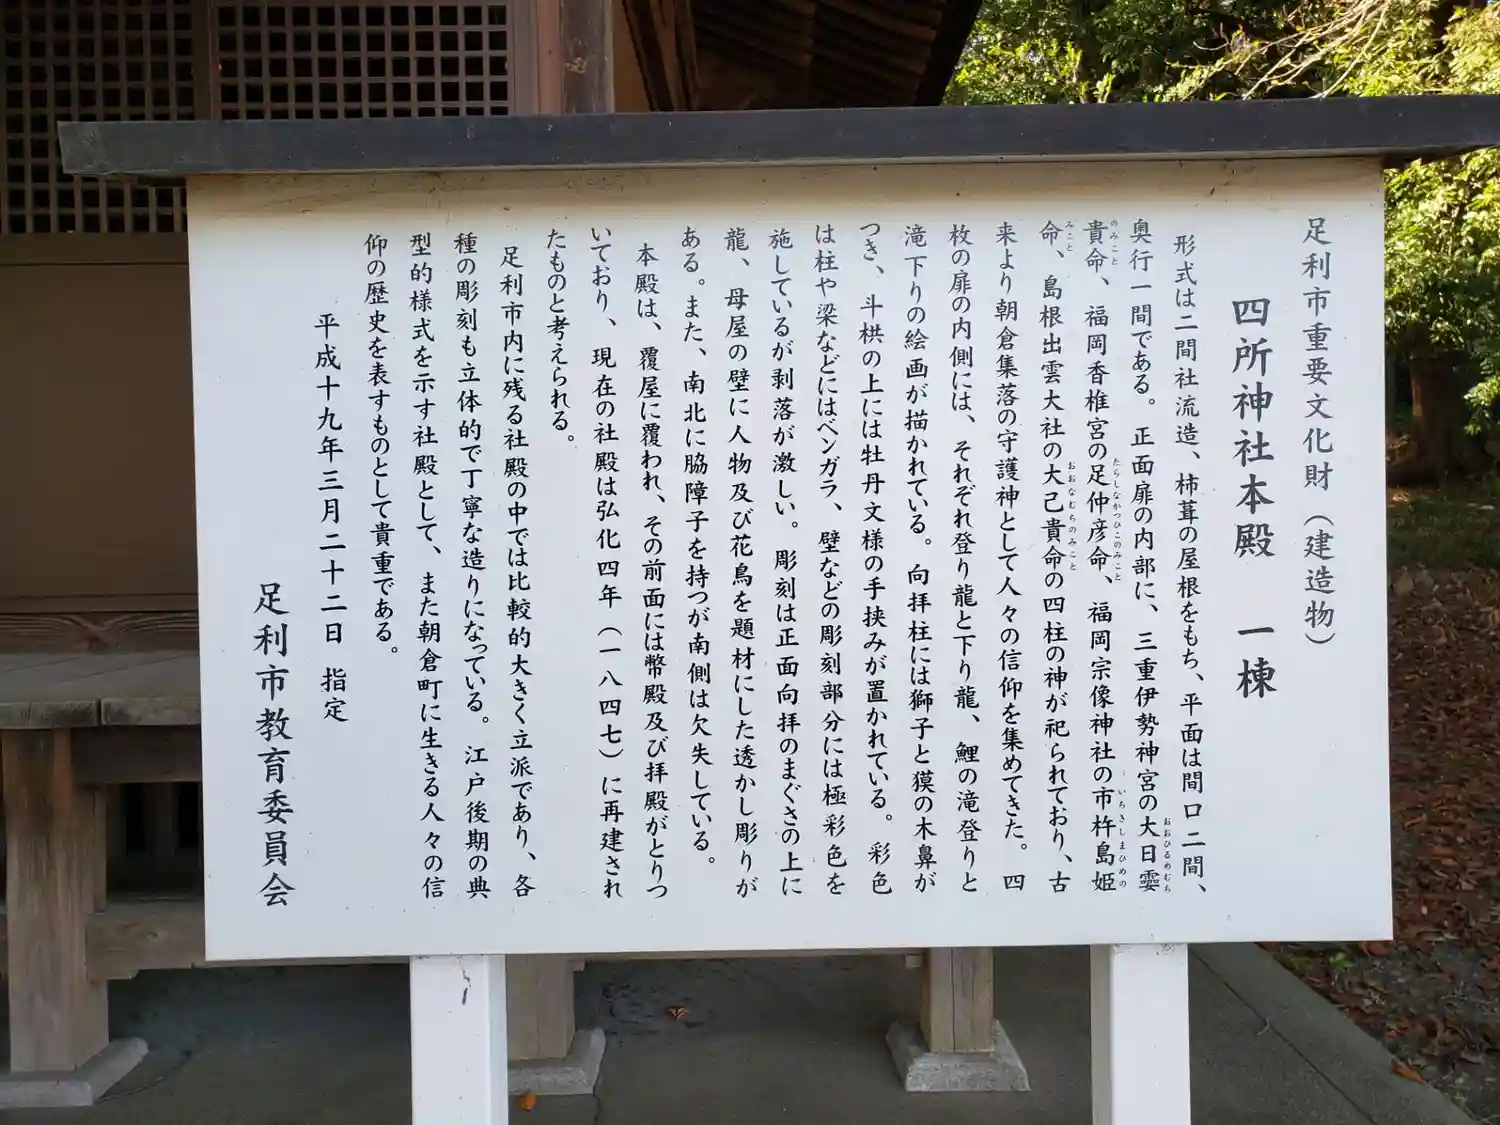 足利市重要文化財（建造物）
四所神社本殿　一棟
形式は二間社流造、柿葺の屋根をもち、平面は間口二間、
奥行一間である。正面扉の内部に、三重伊勢神宮の大日孁
おおひるめむち
貴命、福岡香椎宮の足仲彦命、福岡宗像神社の市杵島姫
のみこと　たらしなかつひこのみこと　いちきしまひめの
命、島根出雲大社の大己貴命の四柱の神が祀られており、古
みこと　おおなむちのみこと
来より朝倉集落の守護神として人々の信仰を集めてきた。四
枚の扉の内側には、それぞれ登り龍と下り龍、鯉の滝登りと
滝下りの絵画が描かれている。向拝柱には獅子と獏の木鼻が
つき、斗栱の上には牡丹文様の手挟みが置かれている。彩色
は柱や梁などにはベンガラ、壁などの彫刻部分には極彩色を
施しているが剥落が激しい。彫刻は正面向拝のまぐさの上に
龍、母屋の壁に人物及び花鳥を題材にした透かし彫りが
ある。また、南北に脇障子を持つが南側は欠失している。
本殿は、覆屋に覆われ、その前面には幣殿及び拝殿がとりつ
いており、現在の社殿は弘化四年（一八四七）に再建され
たものと考えられる。
足利市内に残る社殿の中では比較的大きく立派であり、各
種の彫刻も立体的で丁寧な造りになっている。江戸後期の典
型的様式を示す社殿として、また朝倉町に生きる人々の信
仰の歴史を表すものとして貴重である。
平成十九年三月二十二日　指定
足利市教育委員会